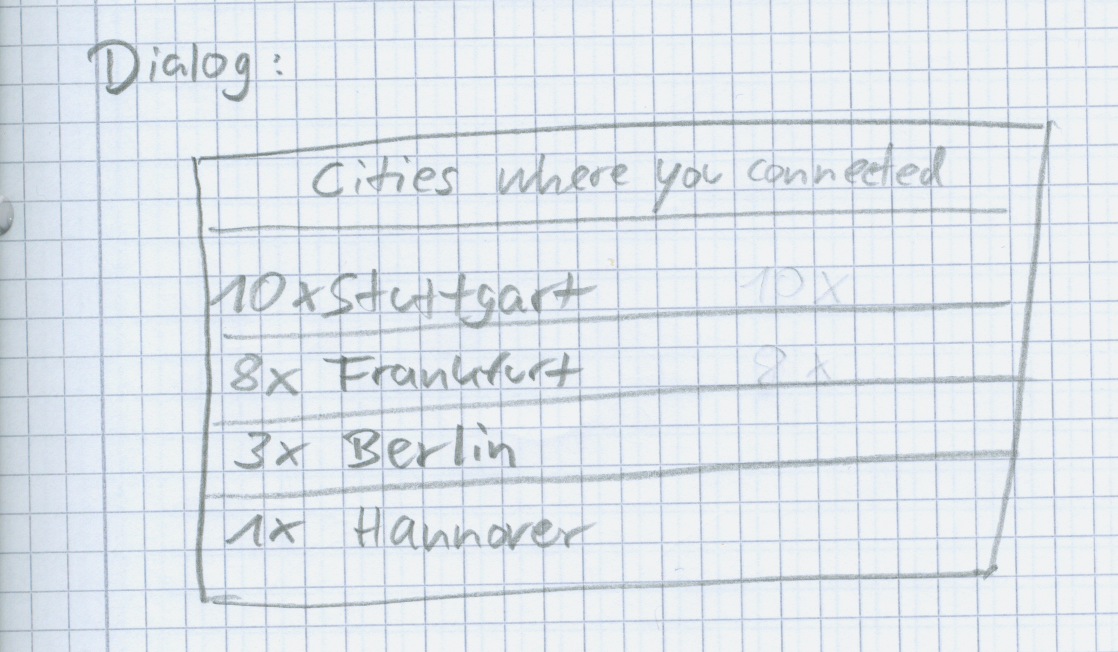 Dialog:
Cities where you connected
10x Stuttgart 10x
8x Frankfurt 8x
3x Berlin
1x Hannover